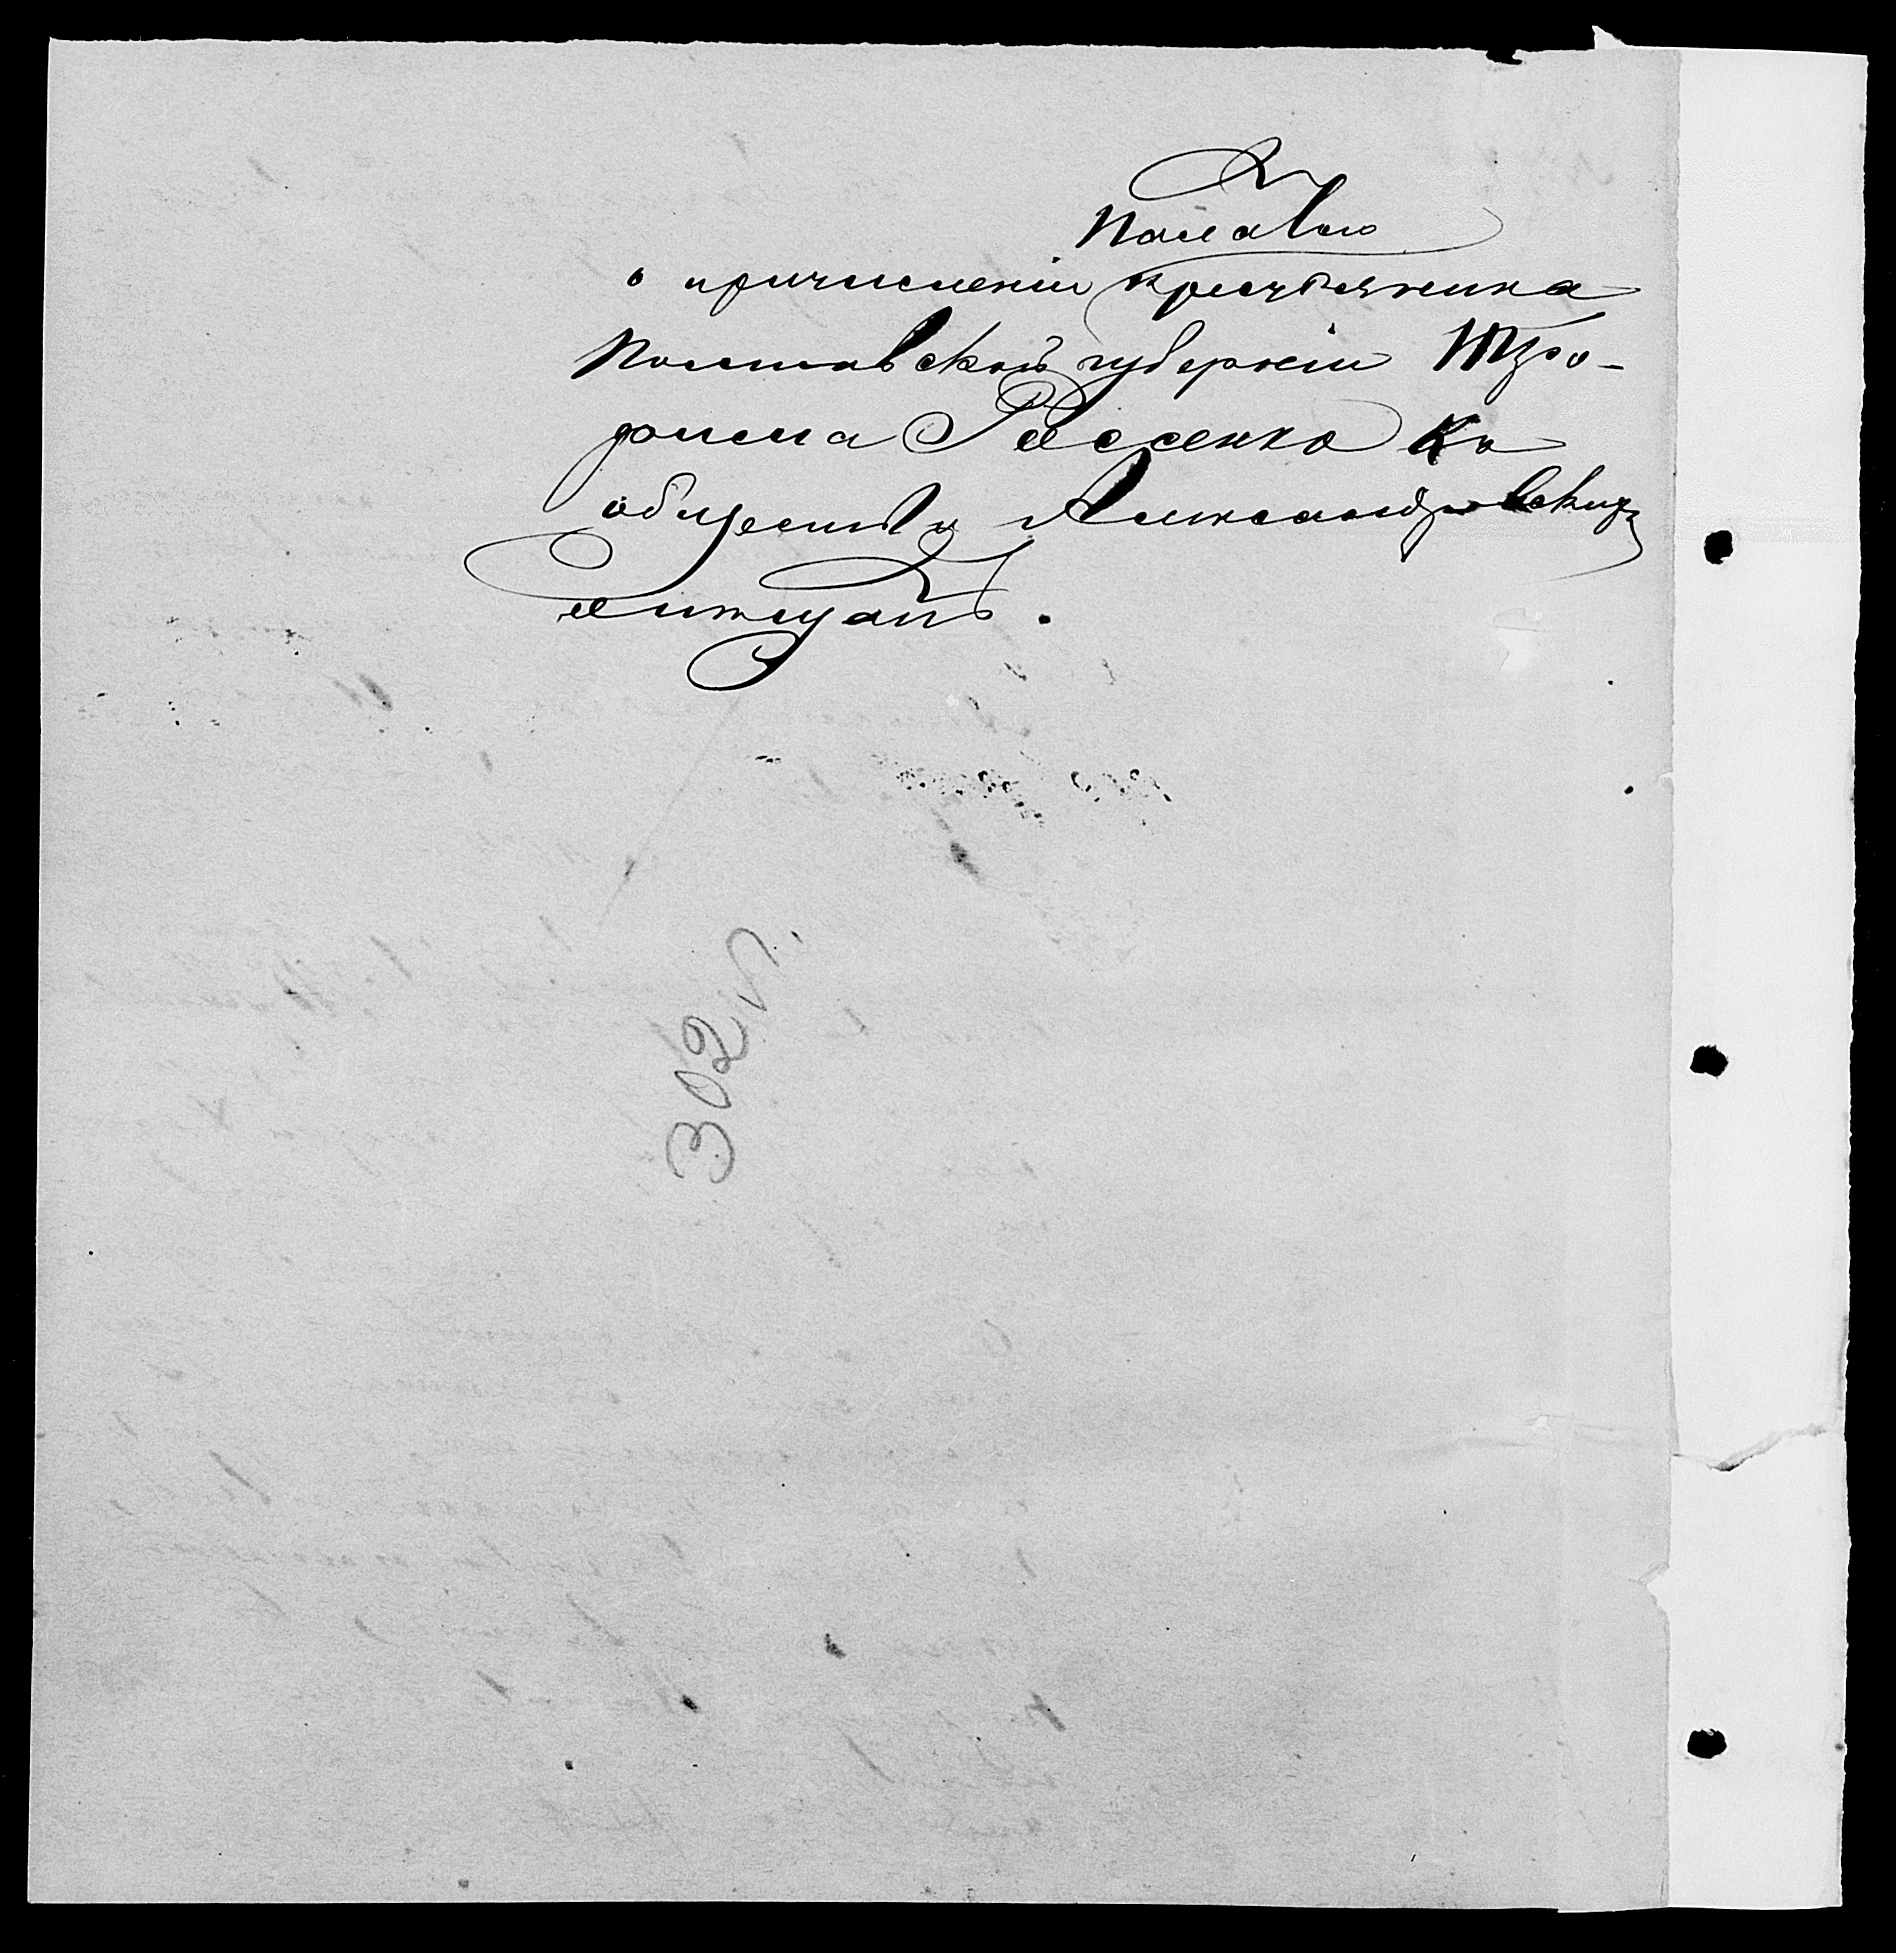 о причисленіи крестьянина
Полтавской губерніи Тро-
фима Лысенко къ
обществу Александровскихъ
мѣщанъ.
302 л.